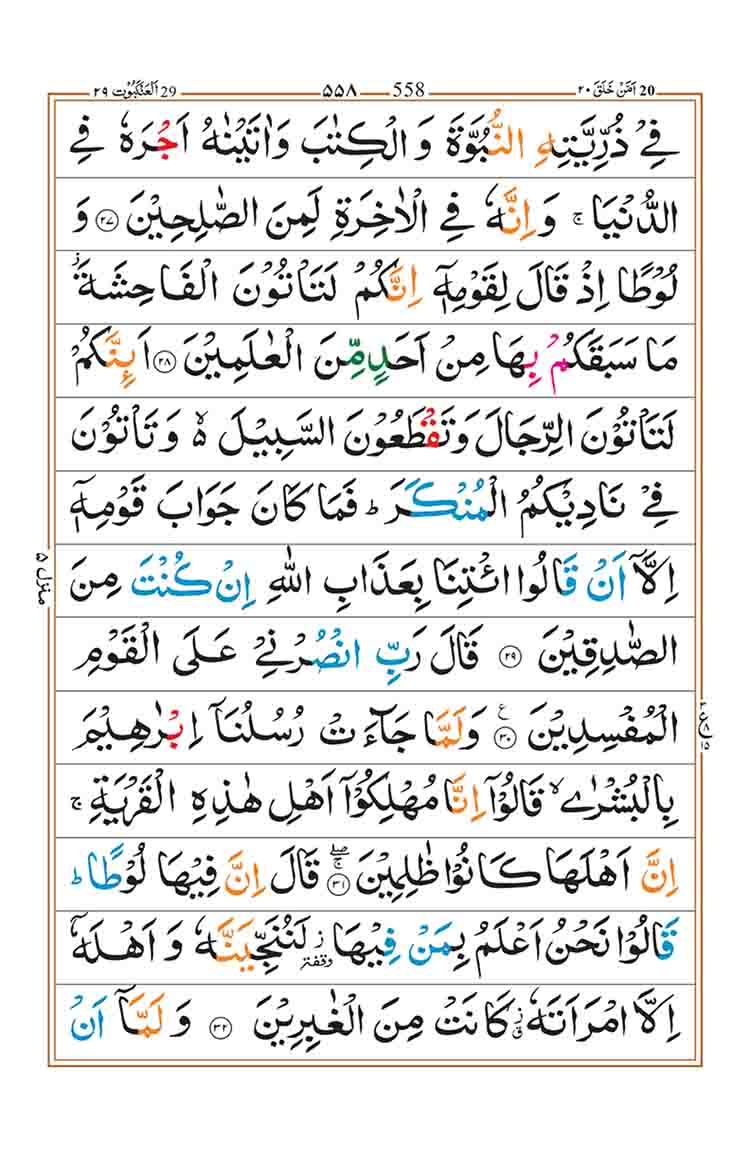 20 اَمَّنْ خَلَقَ ٢٠ 558 ۵۵۸ 29 اَلْعَنْكَبُوْت ٢٩
فِيْ ذُرِّيَّتِهِ النُّبُوَّةَ وَ الْكِتٰبَ وَاٰتَيْنٰهُ اَجْرَهٗ فِي
الدُّنْيَا ۚ وَاِنَّهٗ فِي الْاٰخِرَةِ لَمِنَ الصّٰلِحِيْنَ ۝٢٧ وَ
لُوْطًا اِذْ قَالَ لِقَوْمِهٖٓ اِنَّكُمْ لَتَاْتُوْنَ الْفَاحِشَةَ ۡ
مَا سَبَقَكُمْ بِهَا مِنْ اَحَدٍ مِّنَ الْعٰلَمِيْنَ ۝٢٨ اَئِنَّكُمْ
لَتَاْتُوْنَ الرِّجَالَ وَتَقْطَعُوْنَ السَّبِيْلَ ۙ۬ وَ تَاْتُوْنَ
فِيْ نَادِيْكُمُ الْمُنْكَرَ ؕ فَمَا كَانَ جَوَابَ قَوْمِهٖٓ
اِلَّاۤ اَنْ قَالُوا ائْتِنَا بِعَذَابِ اللّٰهِ اِنْ كُنْتَ مِنَ
الصّٰدِقِيْنَ ۝٢٩ قَالَ رَبِّ انْصُرْنِيْ عَلَى الْقَوْمِ
الْمُفْسِدِيْنَ ۝٣٠ ع وَلَمَّا جَآءَتْ رُسُلُنَاۤ اِبْرٰهِيْمَ
بِالْبُشْرٰى ۙ قَالُوْۤا اِنَّا مُهْلِكُوْۤا اَهْلِ هٰذِهِ الْقَرْيَةِ ۚ
اِنَّ اَهْلَهَا كَانُوْا ظٰلِمِيْنَ ۝٣١ ۚۖ قَالَ اِنَّ فِيْهَا لُوْطًا ؕ
قَالُوْا نَحْنُ اَعْلَمُ بِمَنْ فِيْهَا ز وقفة لَنُنَجِّيَنَّهٗ وَ اَهْلَهٗۤ
اِلَّا امْرَاَتَهٗ ز ق كَانَتْ مِنَ الْغٰبِرِيْنَ ۝٣٢ وَ لَمَّاۤ اَنْ
منزل ۵